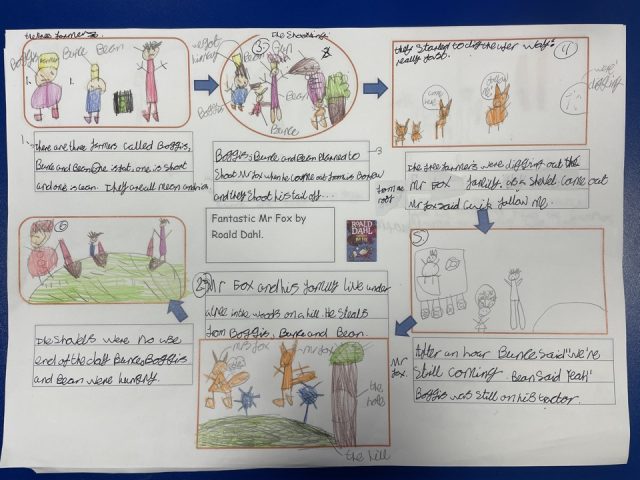 the three farmers
Boggis
Bunce
Bean
1.
1.
1.
There are three farmers called Boggis,
Bunce and Bean. One is fat, one is short
and one is lean. They are all mean and
2
Mr Fox and his family live under
a tree in the woods on a hill. He steals
from Boggis, Bunce and Bean.
mrs fox
mr fox
the hole
the hill
The Shooting!
3
we got him
Boggis
Bean
Gun
Bean
Bunce
Boggis, Bunce and Bean planned to
Shoot Mr Fox when he came out from his Burrow
and they shoot his tail off...
3
Fantastic Mr Fox by
Roald Dahl.
ROALD
DAHL
they started to dig there way
really fast.
4
come here
follow me
we're digging
The free farmers were digging out the
Mr Fox family. as a shovel came out
Mr Fox said quick follow me.
5
After an hour Bunce said "We're
still coming. Bean Said Yeah!
Boggis was still on his tractor.
Mr
Fox.
6
The shovels were no use
end of the day Bunce, Boggis
and Bean were hungry.